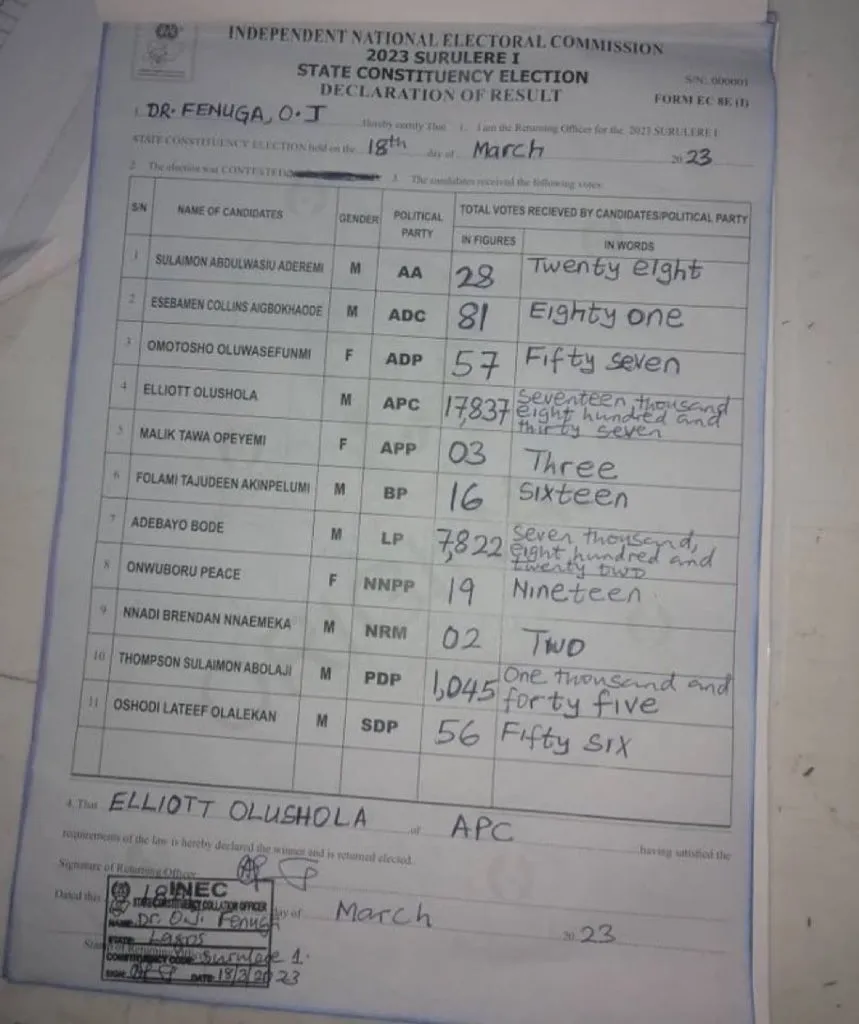 INDEPENDENT NATIONAL ELECTORAL COMMISSION
2023 SURULERE I
STATE CONSTITUENCY ELECTION
DECLARATION OF RESULT
S/N: 000001
FORM EC 8E (I)
1. DR. FENUGA, O.J Hereby certify That 1. I am the Returning Officer for the 2023 SURULERE I
STATE CONSTITUENCY ELECTION held on the 18th day of March 2023
2. The election was CONTESTED 3. The candidates received the following votes:
S/N NAME OF CANDIDATES GENDER POLITICAL PARTY TOTAL VOTES RECIEVED BY CANDIDATES/POLITICAL PARTY
IN FIGURES IN WORDS
1 SULAIMON ABDULWASIU ADEREMI M AA 28 Twenty eight
2 ESEBAMEN COLLINS AIGBOKHAODE M ADC 81 Eighty one
3 OMOTOSHO OLUWASEFUNMI F ADP 57 Fifty seven
4 ELLIOTT OLUSHOLA M APC 17,837 Seventeen thousand eight hundred and thirty seven
5 MALIK TAWA OPEYEMI F APP 03 Three
6 FOLAMI TAJUDEEN AKINPELUMI M BP 16 Sixteen
7 ADEBAYO BODE M LP 7,822 Seven thousand, eight hundred and twenty two
8 ONWUBORU PEACE F NNPP 19 Nineteen
9 NNADI BRENDAN NNAEMEKA M NRM 02 Two
10 THOMPSON SULAIMON ABOLAJI M PDP 1,045 One thousand and forty five
11 OSHODI LATEEF OLALEKAN M SDP 56 Fifty six
4. That ELLIOTT OLUSHOLA of APC having satisfied the
requirements of the law is hereby declared the winner and is returned elected.
Signature of Returning Officer
Dated this 18 day of March 2023
INEC
STATE CONSTITUENCY COLLATION OFFICER
NAME: Dr. O.J. Fenuga
STATE: Lagos
CONSTITUENCY CODE: Surulere 1.
SIGN: DATE: 18/3/2023
of Returning